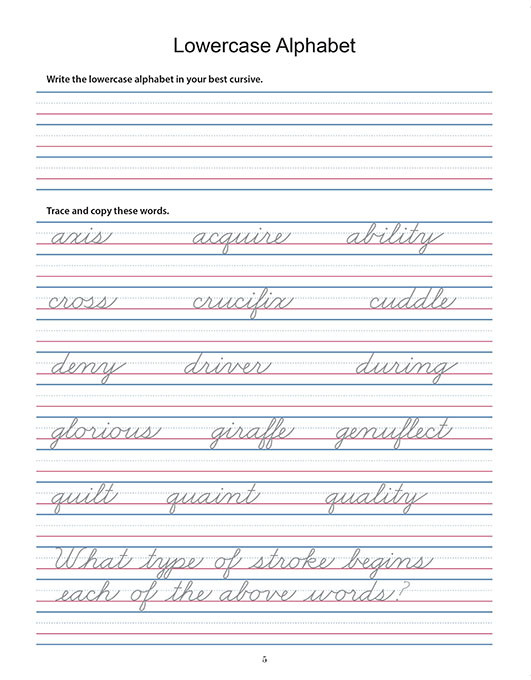 Lowercase Alphabet
Write the lowercase alphabet in your best cursive.
Trace and copy these words.
axis acquire ability
cross crucifix cuddle
deny driver during
glorious giraffe genuflect
quilt quaint quality
What type of stroke begins
each of the above words?
5